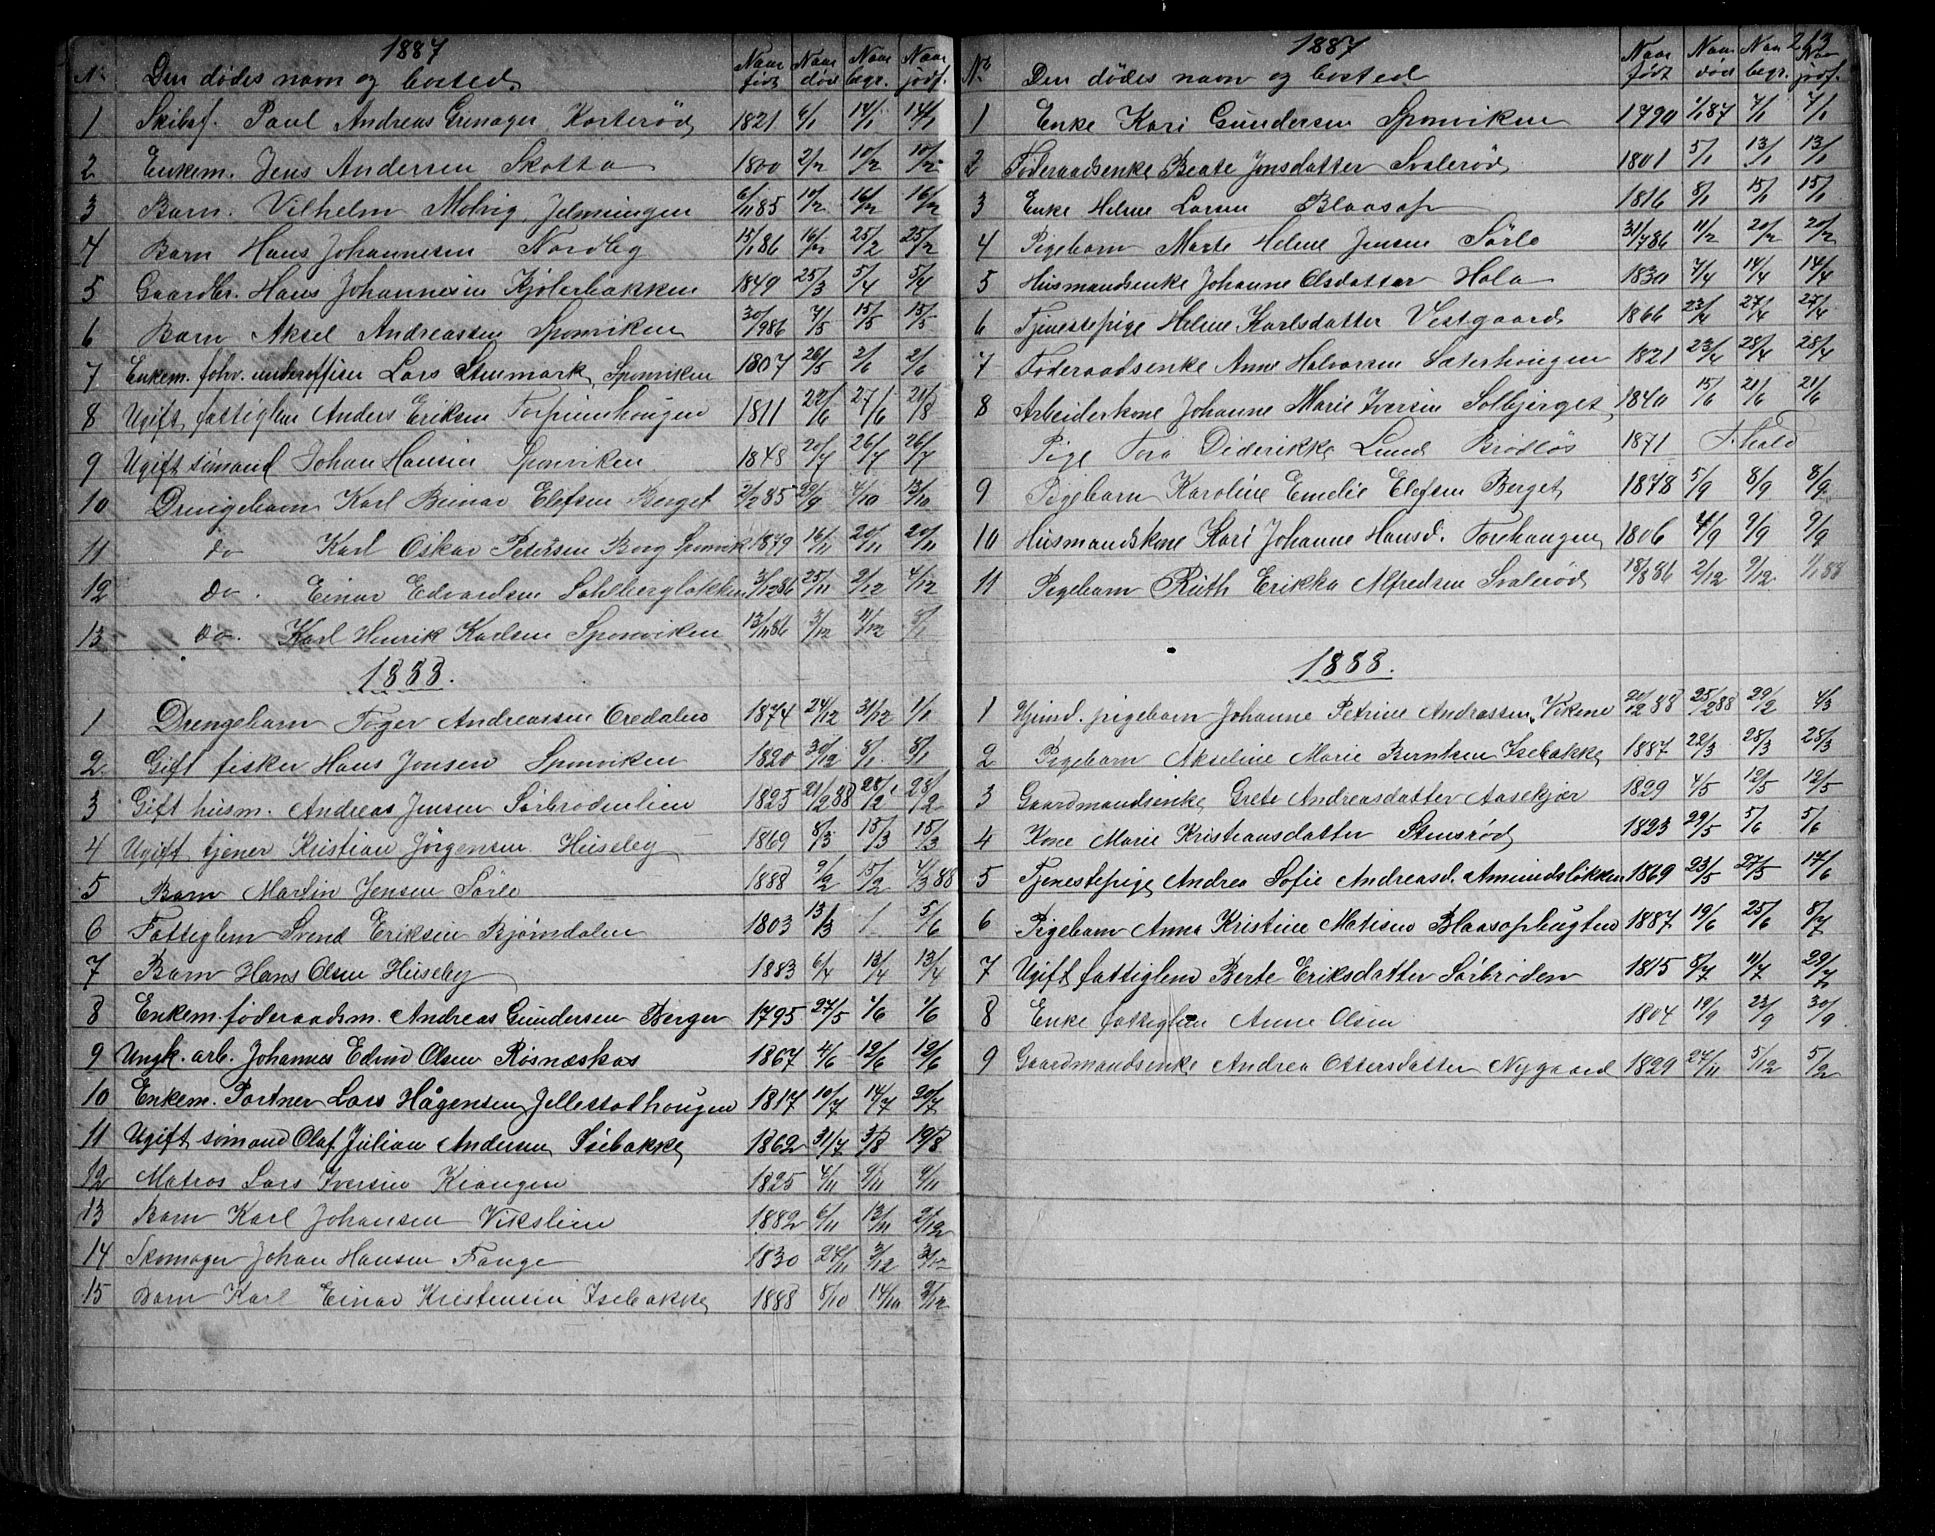 1887
Nr. Den dödes navn og bosted. Naar födt Naar död Naar begr. Naar jordf.
1 Skibsf. Paul Andreas Grenager, Korteröd 1821 6/1 14/1 14/1
2 Enkem. Jens Andersen Skotta 1800 2/2 10/2 10/2
3 Barn. Vilhelm Molvig, Jelmungen 6/11 85 10/2 16/2 16/2
4 Barn Hans Johannesen Nordby 15/1 86 16/2 25/2 25/2
5 Gaardbr. Hans Johannesen Kjölerbakken 1849 25/3 5/4 5/4
6 Barn Aksel Andreassen Sponviken 30/9 86 7/5 15/5 15/5
7 Enkem. forhv. underoffiser Lars Stenmark, Sponviken 1807 26/5 2/6 2/6
8 Ugift fattiglem Anders Eriksen Torpumhougen 1811 22/6 27/6 21/8
9 Ugift sömand Johan Hansen Sponviken 1848 20/7 26/7 26/7
10 Drengebarn Karl Elefsen Berget 2/2 85 29/9 4/10 13/10
11 do Karl Oskar Petersen Borg Sponvik 1879 16/11 20/11 20/11
12 do. Einar Edvardsen Sahlberglökken 3/12 86 25/11 2/12 4/12
13 do. Karl Henrik Karlsen Sponviken 13/11 86 3/12 11/12 8/1
1888.
1 Drengebarn Töger Andreassen Oredalen 1874 24/12 31/12 1/1
2 Gift fisker Hans Jonsen Sponviken 1820 30/12 8/1 8/1
3 Gift husm. Andreas Jensen Sörbrödenlien 1825 21/2 88 28/2 28/2
4 Ugift tjener Kristian Jörgensen Huseby 1869 8/3 15/3 15/3
5 Barn Martin Jensen Sörle 1888 9/2 15/2 4/3 88
6 Fattiglem Svend Eriksen Bjørndalen 1803 13/3 / 5/6
7 Barn Hans Olsen Huseby 1883 6/4 13/4 13/4
8 Enkem. føderaadsm. Andreas Gundersen Berger 1795 27/5 1/6 1/6
9 Ungk. arb. Johannes Edvind Olsen Røsnæskas 1867 4/6 12/6 12/6
10 Enkem. Portner Lars Hågensen Jellestadhougen 1817 10/7 14/7 20/7
11 Ugift sömand Olaf Julian Andersen Isebakke 1862 31/7 3/8 19/8
12 Matros Lars Iversen Krangen 1825 4/11 9/11 9/11
13 Barn Karl Johansen Vikslien 1882 6/11 13/11 2/12
14 Skomager Johan Hansen Tange 1830 24/11 3/12 3/12
15 Barn Karl Einar Kristensen Isebakke 1888 8/10 14/10 2/12
1887 213
Nr. Den dödes navn og bosted Naar födt Naar död Naar begr. Naar jordf.
1 Enke Kari Gundersen Sponviken 1790 1/1 87 7/1 7/1
2 Föderaadsenke Beate Jonsdatter Svaleröd 1801 5/1 13/1 13/1
3 Enke Helene Larsen Blaasop 1816 8/1 15/1 15/1
4 Pigebarn Marte Helene Jensen Sörle 31/7 86 11/2 20/2 20/2
5 Husmandsenke Johanne Olsdatter Hola 1830 7/4 14/4 14/4
6 Tjenestepige Helene Karlsdatter Vestgaard 1866 23/4 27/4 27/4
7 Föderaadsenke Anne Halvorsen Sæterhougen 1821 23/4 28/4 28/4
8 Arbeiderkone Johanne Marie Iversen Solbjerget 1840 15/6 21/6 21/6
Pige Tora Diderikke Lund Brödlös 1871 F.hald
9 Pigebarn Karoline Emelie Elefsen Berget 1878 5/9 8/9 8/9
10 Husmandskone Kari Johanne Hansd. Torehaugen 1806 4/9 9/9 9/9
11 Pigebarn Ruth Erikka Alfredsen Svaleröd 18/8 86 2/12 9/12 1/1 88
1888.
1 Hjemd. pigebarn Johanne Petrine Andreassen, Vikene 20/2 88 25/2 88 29/2 4/3
2 Pigebarn Akseline Marie Berntsen Isebakke 1887 22/3 28/3 28/3
3 Gaardmandsenke Grete Andreasdatter Aasekjær 1829 4/5 12/5 12/5
4 Kone Marie Kristiansdatter Stensröd 1823 29/5 5/6 5/6
5 Tjenestepige Andrea Sofie Andreasd. Amundsløkken 1869 23/5 27/5 17/6
6 Pigebarn Anna Kristine Matisen Blaasopbugten 1887 19/6 25/6 8/7
7 Ugift fattiglem Berte Eriksdatter Sørbrøden 1815 8/7 11/7 29/7
8 Enke fattiglem Anne Olsen 1804 19/9 23/9 30/9
9 Gaardmandsenke Andrea Ottersdatter Nygaard 1829 27/11 5/12 5/12